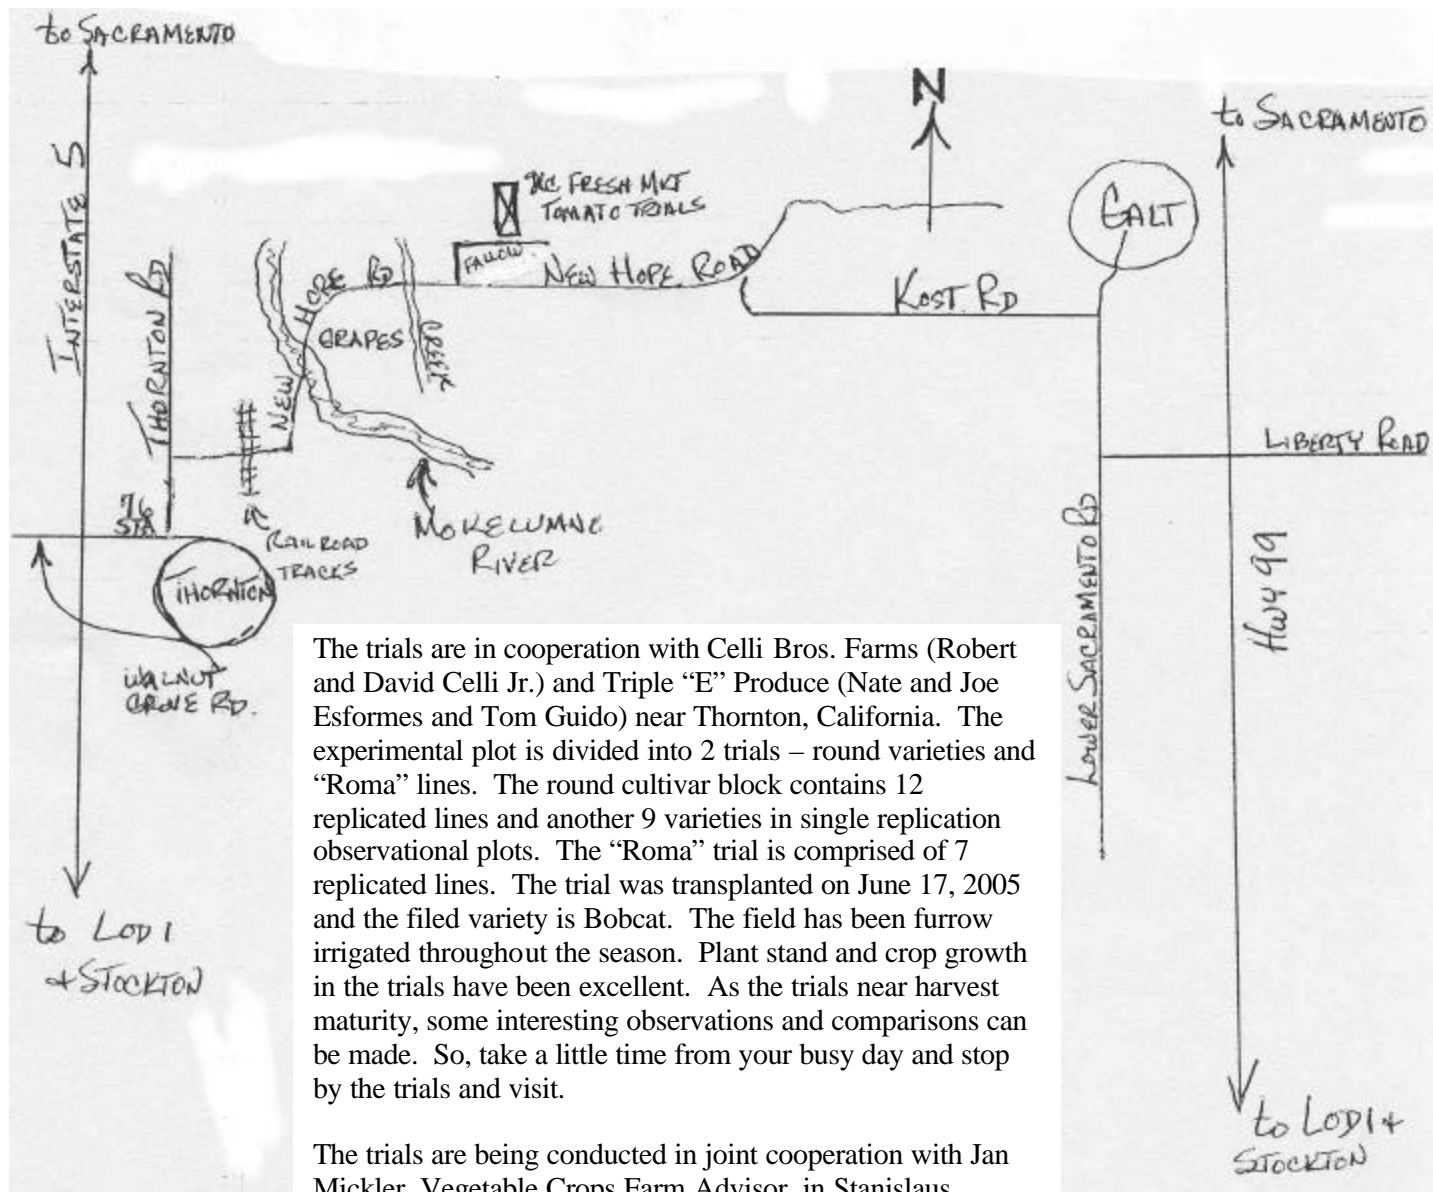 to SACRAMENTO
N
to SACRAMENTO
INTERSTATE 5
UC FRESH MKT
TOMATO TRIALS
GALT
THORNTON RD
FALLOW
NEW HOPE ROAD
NEW HOPE RD
KOST RD
GRAPES
CREEK
LIBERTY ROAD
76
STA
RAILROAD
TRACKS
MOKELUMNE
RIVER
THORNTON
WALNUT
GROVE RD.
LOWER SACRAMENTO RD
HWY 99
to LODI
& STOCKTON
The trials are in cooperation with Celli Bros. Farms (Robert
and David Celli Jr.) and Triple “E” Produce (Nate and Joe
Esformes and Tom Guido) near Thornton, California. The
experimental plot is divided into 2 trials – round varieties and
“Roma” lines. The round cultivar block contains 12
replicated lines and another 9 varieties in single replication
observational plots. The “Roma” trial is comprised of 7
replicated lines. The trial was transplanted on June 17, 2005
and the filed variety is Bobcat. The field has been furrow
irrigated throughout the season. Plant stand and crop growth
in the trials have been excellent. As the trials near harvest
maturity, some interesting observations and comparisons can
be made. So, take a little time from your busy day and stop
by the trials and visit.
The trials are being conducted in joint cooperation with Jan
Mickler, Vegetable Crops Farm Advisor, in Stanislaus
to LODI +
STOCKTON